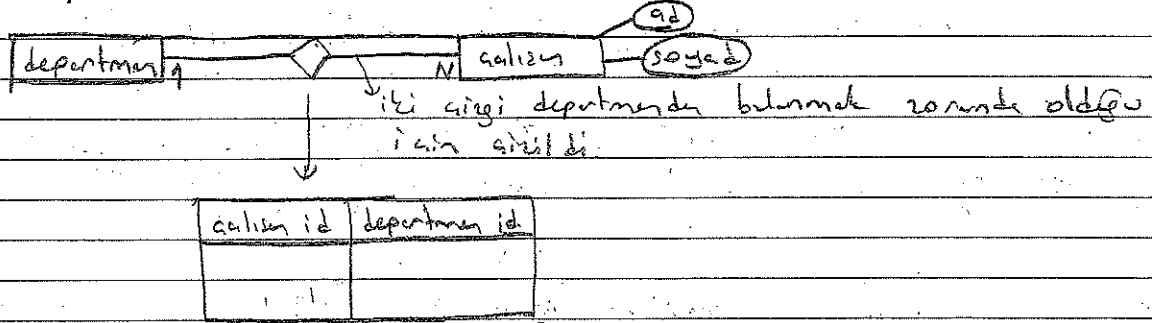 ad
departman 1 N çalışan soyad
iki çizgi departmanda bulunmak zorunda olduğu
için çizildi
çalışan id departman id